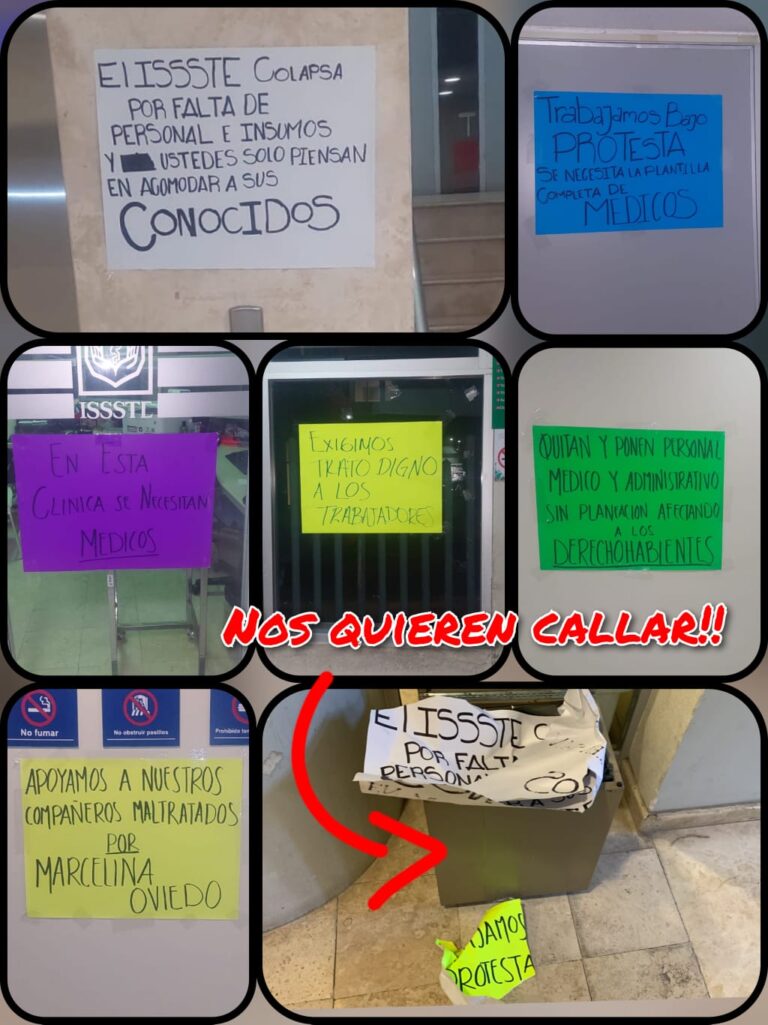 El ISSSTE COLAPSA
POR FALTA DE
PERSONAL E INSUMOS
Y USTEDES SOLO PIENSAN
EN ACOMODAR A SUS
CONOCIDOS
Trabajamos Bajo
PROTESTA
SE NECESITA LA PLANTILLA
COMPLETA DE
MEDICOS
ISSSTE
EN ESTA
CLINICA SE NECESITAN
MEDICOS
EXIGIMOS
TRATO DIGNO
A LOS
TRABAJADORES
QUITAN Y PONEN PERSONAL
MEDICO Y ADMINISTRATIVO
SIN PLANEACION AFECTANDO
A LOS
DERECHOHABIENTES
NOS QUIEREN CALLAR!!
No fumar
No obstruir pasillos
Prohibido
APOYAMOS A NUESTROS
COMPAÑEROS MALTRATADOS
POR
MARCELINA
OVIEDO
El ISSSTE C
POR FALT
PERSONA
CO
JAMOS
PROTESTA